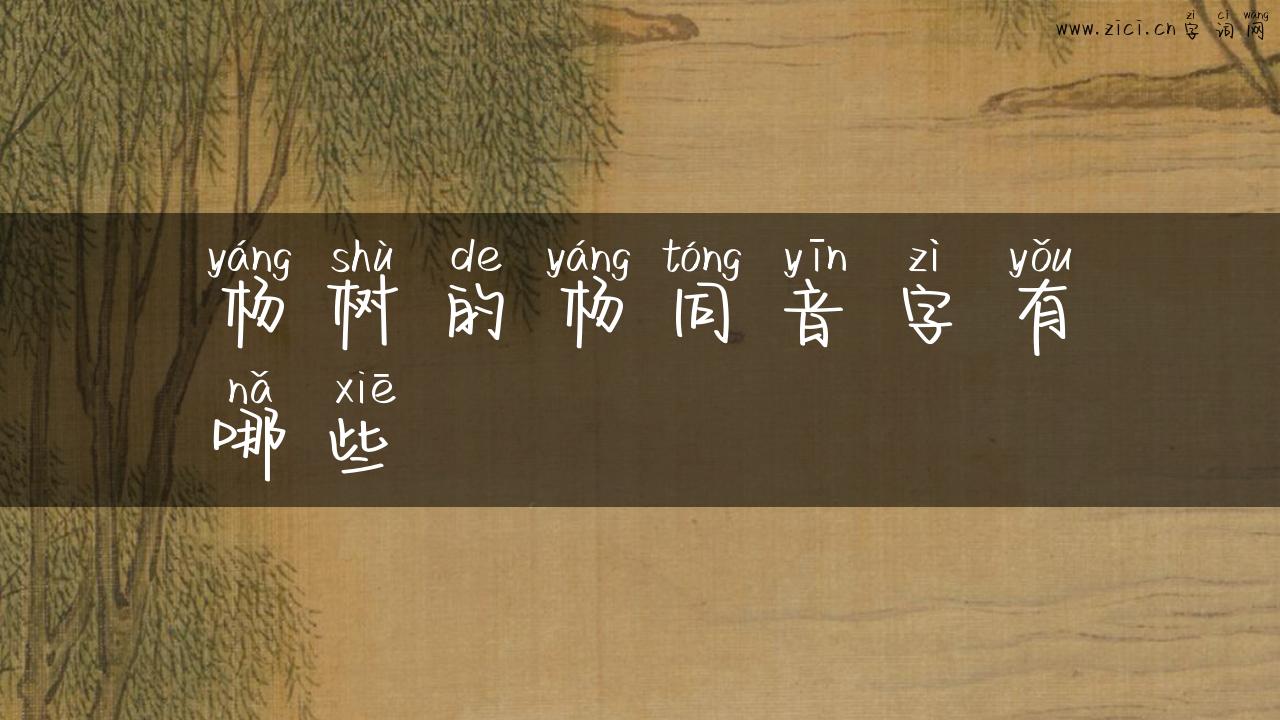 www.zici.cn zì cí wǎng
字词网
yáng shù de yáng tóng yīn zì yǒu
杨树的杨同音字有
nǎ xiē
哪些